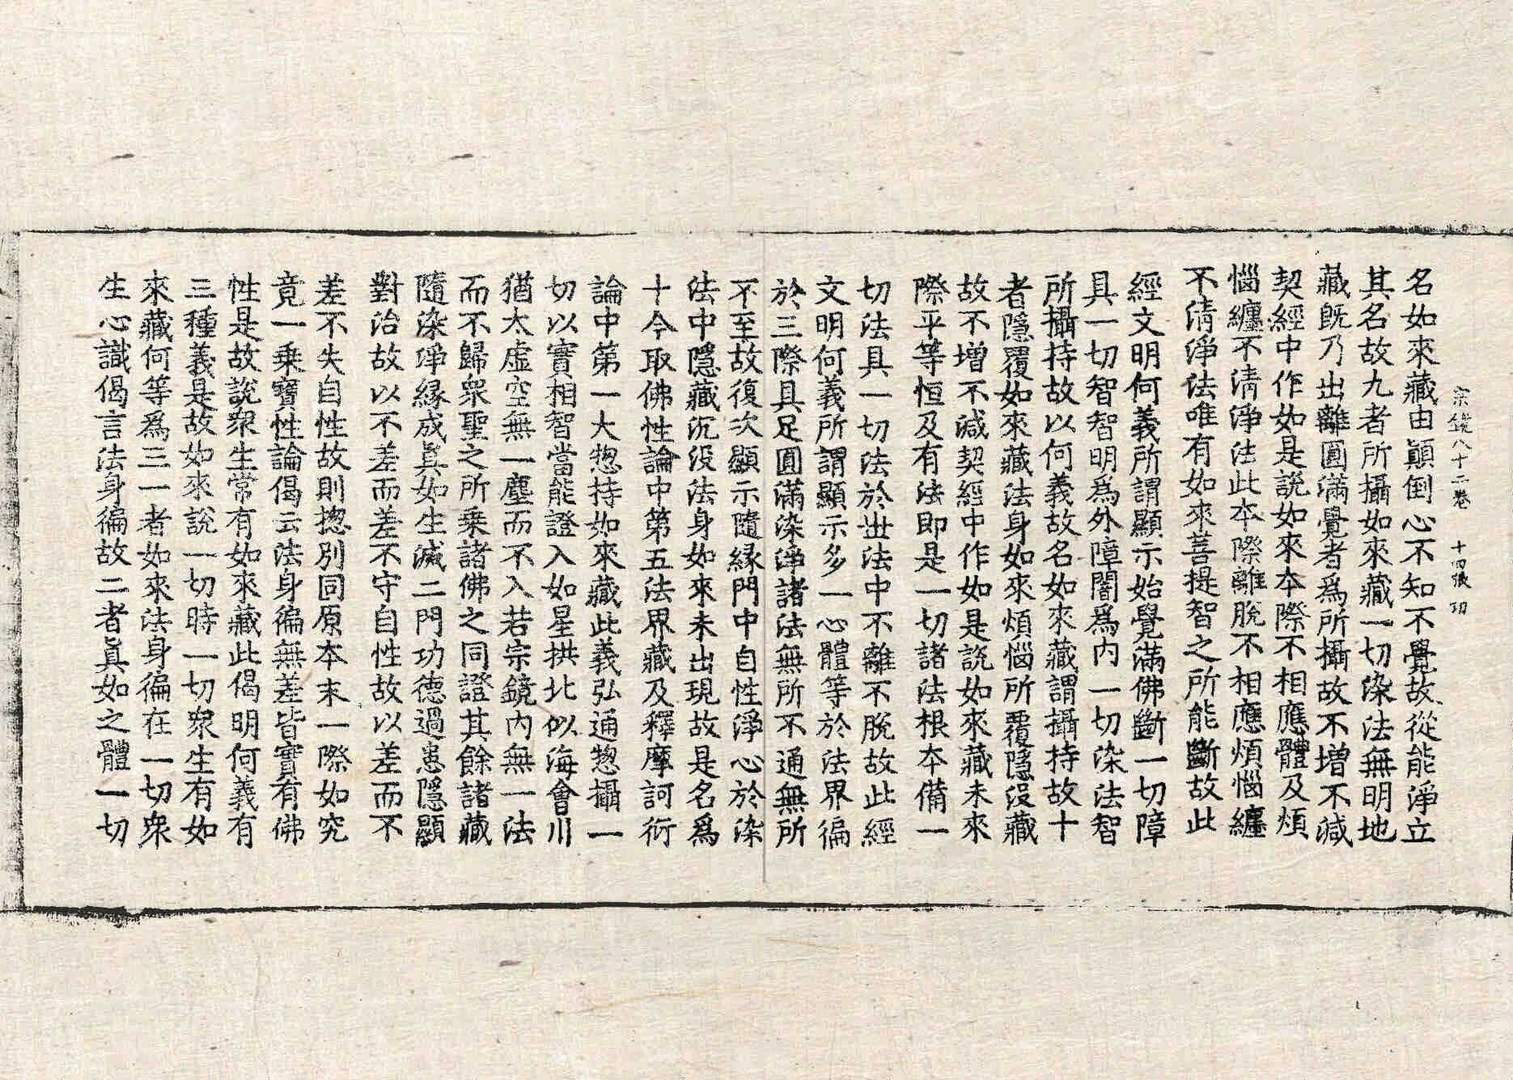 宗鏡八十二卷 十四張 功
名如來藏由顚倒心不知不覺故從能淨立
其名故九者所攝如來藏一切染法無明地
藏旣乃出離圓滿覺者爲所攝故不增不減
契經中作如是說如來本際不相應體及煩
惱纏不淸淨法此本際離脫不相應煩惱纏
不淸淨法唯有如來菩提智之所能斷故此
經文明何義所謂顯示始覺滿佛斷一切障
具一切智智明爲外障闇爲內一切染法智
所攝持故以何義故名如來藏謂攝持故十
者隱覆如來藏法身如來煩惱所覆隱沒藏
故不增不減契經中作如是說如來藏未來
際平等恒及有法卽是一切諸法根本備一
切法具一切法於世法中不離不脫故此經
文明何義所謂顯示多一心體等於法界徧
於三際具足圓滿染淨諸法無所不通無所
不至故復次顯示隨緣門中自性淨心於染
法中隱藏沉沒法身如來未出現故是名爲
十今取佛性論中第五法界藏及釋摩訶衍
論中第一大惣持如來藏此義弘通惣攝一
切以實相智當能證入如星拱北似海會川
猶太虛空無一塵而不入若宗鏡內無一法
而不歸衆聖之所乘諸佛之同證其餘諸藏
隨染淨緣成眞如生滅二門功德過患隱顯
對治故以不差而差不守自性故以差而不
差不失自性故則揔別同原本末一際如究
竟一乘寶性論偈云法身徧無差皆實有佛
性是故說衆生常有如來藏此偈明何義有
三種義是故如來說一切時一切衆生有如
來藏何等爲三一者如來法身徧在一切衆
生心識偈言法身徧故二者眞如之體一切